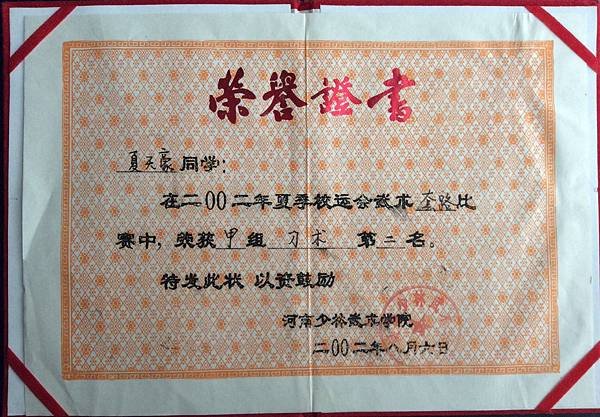 荣誉證书
夏天豪同学:
在二00二年夏季校运会武术套路比
赛中,荣获甲组刀术第二名。
特发此状 以资鼓励
河南少林武术学院
二00二年八月六日